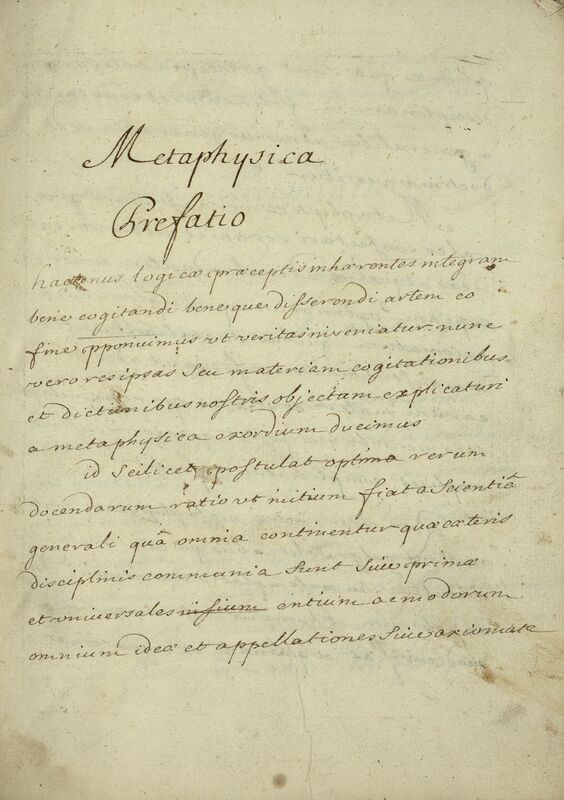 Metaphysica
Prefatio
hactenus logicæ præceptis inhærentes integram
bene cogitandi bene que disserondi artem eo
fine opponuimus ut veritas inveniatur. nunc
vero res ipsas seu materiam cogitationibus
et dictionibus nostris objectam explicaturi
a metaphysica exordium ducimus
id scilicet postulat optima rerum
docendarum ratio ut initium fiat a scientiâ
generali quâ omnia continentur quæ cæteris
disciplinis communia sunt sive primæ
et universales entium ac modorum
omnium ideæ et appellationes sive axiomata